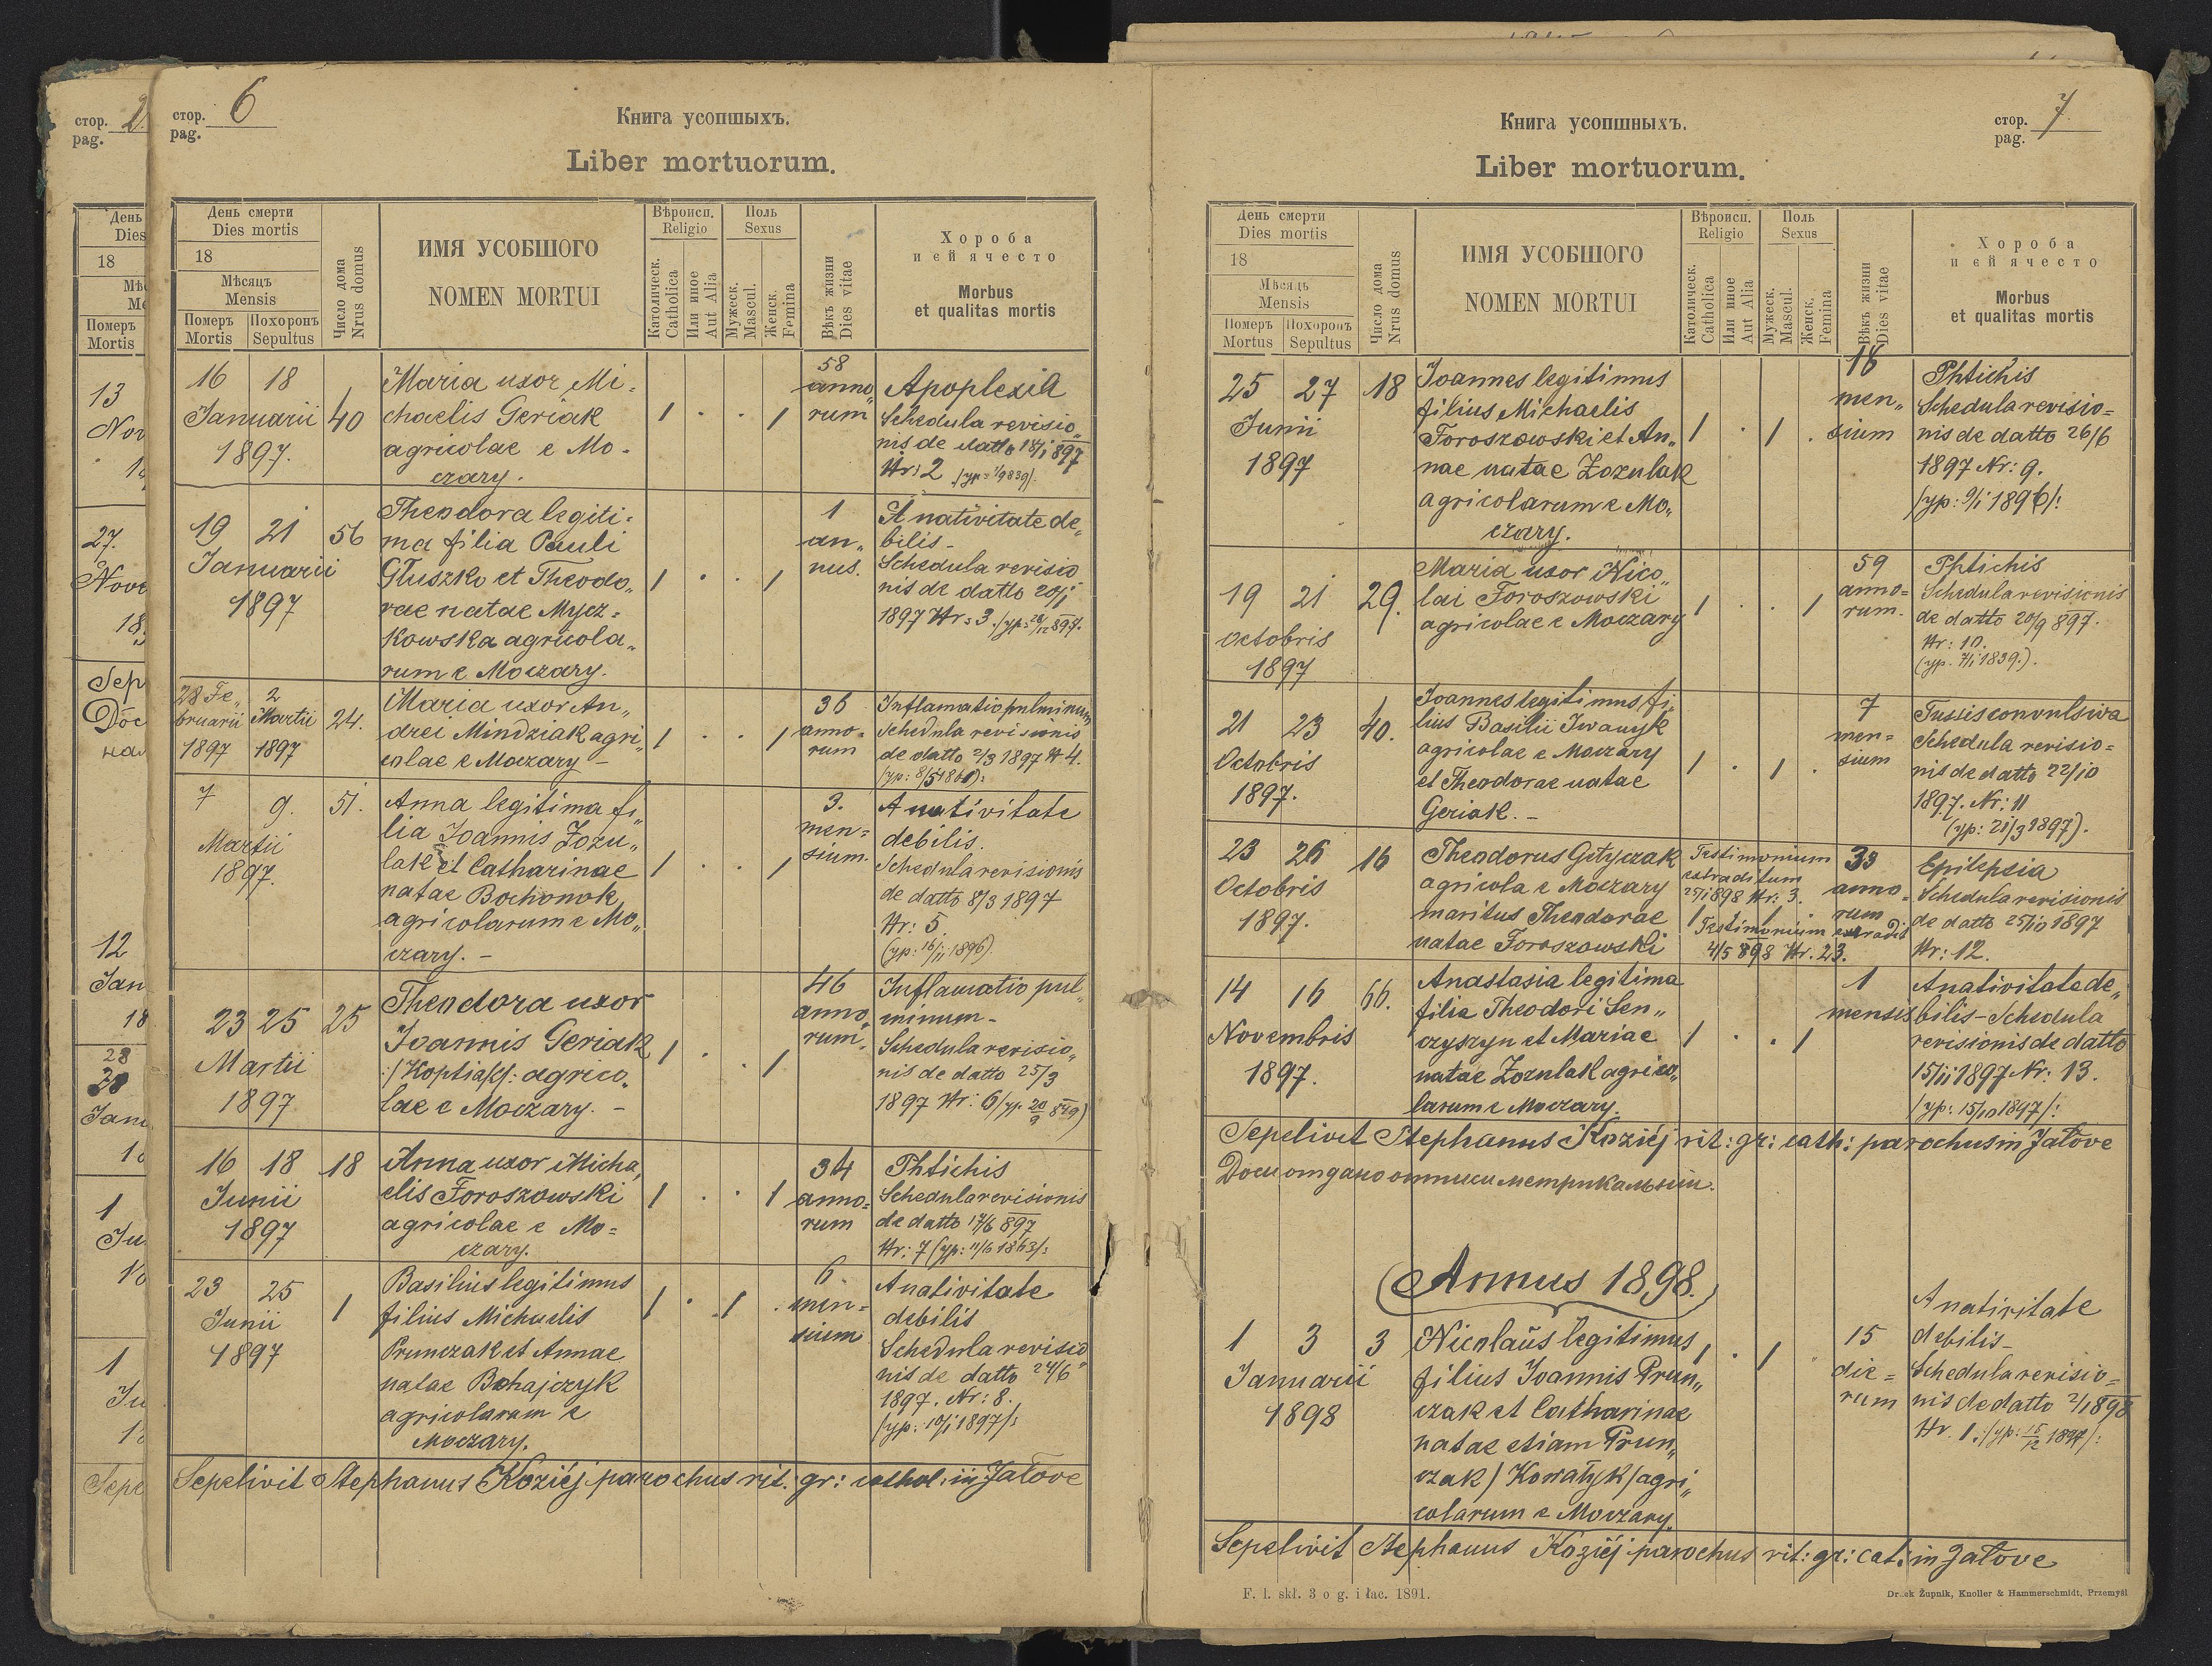 стор. 2.
pag.
День
Dies
18
Померъ
Mortis
13
Nov
27.
Nove
18
Sep
12
Jan
18
28
Janu
1
Ju
1
Ju
Sepe
стор. 6
pag.
Книга усопшыхъ.
Liber mortuorum.
День смерти
Dies mortis
18
Мѣсяцъ
Mensis
Померъ Похоронъ
Mortis Sepultus
Число дома
Nrus domus
ИМЯ УСОБШОГО
NOMEN MORTUI
Вѣроисп.
Religio
Католическ.
Catholica
Или иное
Aut Alia
Поль
Sexus
Мужеск.
Mascul.
Женск.
Femina
Вѣкъ жизни
Dies vitae
Хороба
и ей ячесто
Morbus
et qualitas mortis
16 18
Januarii
1897.
40
Maria uxor Mi-
chaelis Geriak
agricolae e Mo-
czary.
1 . . 1
58
anno„
rum
Apoplexia
Schedula revisio„
nis de datto 18/1 897
Nr: 2 /yp: 1/9 839/.
19 21
Januarii
1897
56
Theodora legiti-
ma filia Pauli
Głuszko et Theodo„
rae natae Mycz-
kowska agricola„
rum e Moczary.
1 . . 1
1
an„
nus.
A nativitate de„
bilis -
Schedula revisio
nis de datto 20/1
1897 Nr: 3
28 Fe„
bruarii
1897
2
Martii
1897
24.
Maria uxor An„
drei Mindziak agri„
colae e Moczary -
1 . . 1
36
anno-
rum
Inflamatio pulminum
Schedula revisionis
de datto 2/3 1897 N 4.
7 9.
Martii
1897.
51.
Anna legitima fi„
lia Joannis Zozu„
lak et Catharinae
natae Bochonok
agricolarum e Mo„
czary. -
1 . . 1
3.
men-
sium.
A nativitate
debilis.
Schedula revisionis
de datto 8/3 1897
Nr: 5.
(yp: 16/11 1896).
23 25
Martii
1897
25
Theodora uxor
Joannis Geriak
agrico„
lae e Moczary. -
1 . . 1
46
anno„
rum.
Inflamatio pul„
minum -
Schedula revisio„
nis de datto 25/3
1897 Nr: 6 /yp. 20/9 849)
16 18
Junii
1897
18
Anna uxor Micha„
elis Foroszowski
agricolae e Mo-
czary.
1 . . 1
34
anno-
rum
Phtichis
Schedula revisionis
de datto 17/6 897
Nr: 7 (yp: 11/6 1863/:
23 25
Junii
1897
1
Basilius legitimus
filius Michaelis
Prunczak et Annae
natae Bohajczyk
agricolarum e
Moczary.
1 . 1 .
6
men-
sium
A nativitate
debilis
Schedula revisio
nis de datto 24/6
1897. Nr: 8.
/yp: 10/1 1897/:
Sepelivit Stephanus Koziéj parochus rit: gr: cathol: in Jałove
стор. 7.
pag.
Книга усопшныхъ.
Liber mortuorum.
День смерти
Dies mortis
18
Мѣсяць
Mensis
Померъ Похоронъ
Mortus Sepultus
Число дома
Nrus domus
ИМЯ УСОБШОГО
NOMEN MORTUI
Вѣроисп.
Religio
Католическ.
Catholica
Или иное
Aut Alia
Поль
Sexus
Мужеск.
Mascul.
Женск.
Femina
Вѣкъ жизни
Dies vitae
Хороба
и ей ячесто
Morbus
et qualitas mortis
25 27
Junii
1897
18
Joannes legitimus
filius Michaelis
Foroszowski et An„
nae natae Zozulak
agricolarum e Mo„
czary.
1 . 1 .
18
men„
sium
Phtichis
Schedula revisio-
nis de datto 26/6
1897 Nr: 9.
/yp: 9/1 1896/:
19 21
Octobris
1897
29.
Maria uxor Nico„
lai Foroszowski
agricolae e Moczary
1 . . 1
59
anno-
rum.
Phtichis
Schedula revisionis
de datto 20/9 897.
Nr: 10.
(yp. 7/1 1839.).
21 23
Octobris
1897.
40.
Joannes legitimus fi„
lius Basilii Iwanyk
agricolae e Moczary
et Theodorae natae
Geriak. -
1 . 1 .
7
men-
sium
Tussis convulsiva
Schedula revisio-
nis de datto 22/10
1897. Nr: 11
(yp: 21/3 1897).
23 26
Octobris
1897.
16
Theodorus Gityczak
agricola e Moczary
maritus Theodorae
natae Foroszowski
Testimonium
extraditum
25/1 898 Nr: 3.
1 . 1 .
Testimonium extradit
4/5 898 Nr. 23.
33
anno-
rum
Epilepsia
Schedula revisionis
de datto 25/10 1897
Nr: 12.
14 16
Novembris
1897.
66.
Anastasia legitima
filia Theodori Sen„
czyszyn et Mariae
natae Zozulak agrico„
larum e Moczary.
1 . . 1
1
mensis
A nativitate de„
bilis - Schedula
revisionis de datto
15/11 1897 Nr: 13.
/yp: 15/10 1897/:
Sepelivit Stephanus Koziéj rit: gr: cath: parochus in Jałove
Доси отдано отписи метрикальніи.
Annus 1898.
1 3
Januarii
1898
3
Nicolaus legitimus
filius Joannis Prun„
czak et Catharinae
natae etiam Prun„
czak / Kowałyk / agri„
colarum e Moczary.
1 . 1 .
15
die-
rum
A nativitate
debilis -
Schedula revisio-
nis de datto 2/1 898
Nr. 1. /yp: 15/12 1897/:
Sepelivit Stephanus Koziéj parochus rit: gr: cat: in Jałove
F. l. skł. 3 o g. i łac. 1891.
Druck Żupnik, Knoller & Hammerschmidt, Przemyśl